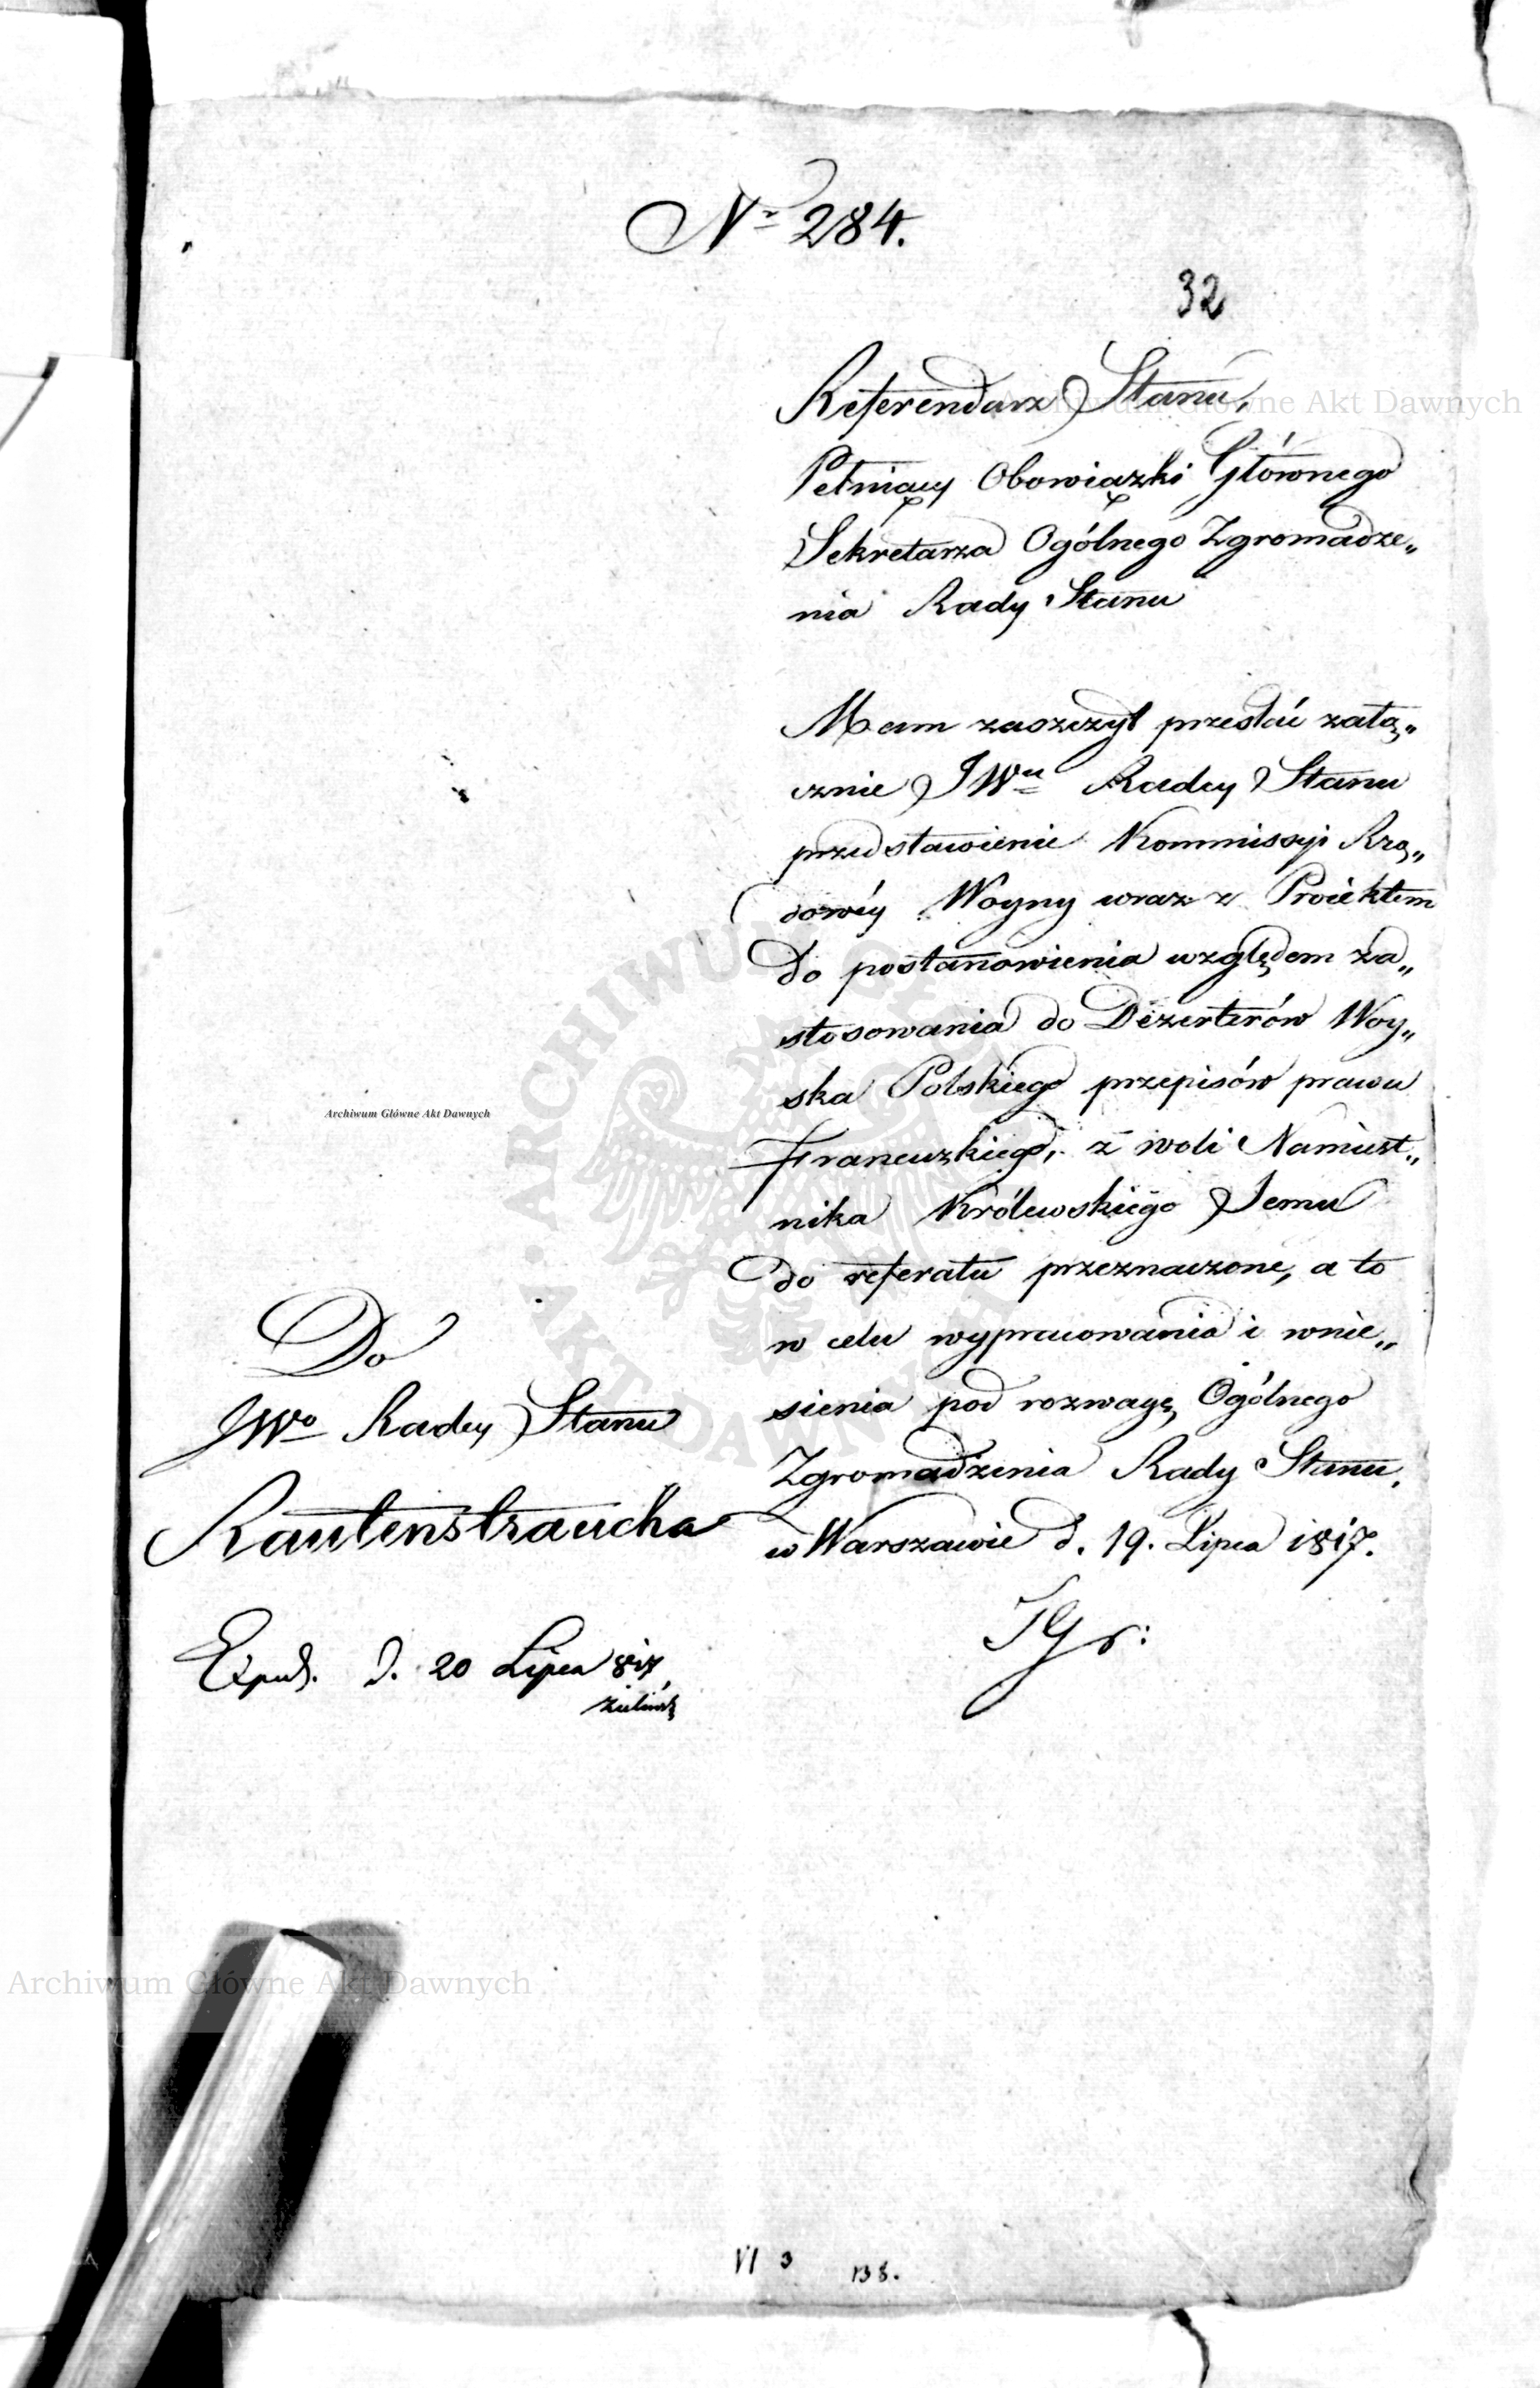 Nr 284.
32
Referendarz Stanu,
Pełniący Obowiązki Głównego
Sekretarza Ogólnego Zgromadze„
nia Rady Stanu
Mam zaszczyt przesłać załą„
cznie JWu Radcy Stanu
przedstawienie Kommissyi Rzą„
dowéy Woyny wraz z Proiektem
do postanowienia względem za„
stosowania do Dezerterów Woy„
ska Polskiego przepisów prawa
Francuzkiego, z woli Namiest„
nika Królewskiego Jemu
do referatu przeznaczone, a to
w celu wypracowania i wnie„
sienia pod rozwagę Ogólnego
Zgromadzenia Rady Stanu.
w Warszawie d. 19. Lipca 1817.
Do
JWo Radcy Stanu
Rautenstraucha
Exped. d. 20 Lipca 817
VI 3 138.
Archiwum Główne Akt Dawnych
Archiwum Główne Akt Dawnych
Archiwum Główne Akt Dawnych
ARCHIWUM GŁÓWNE · AKT DAWNYCH ·